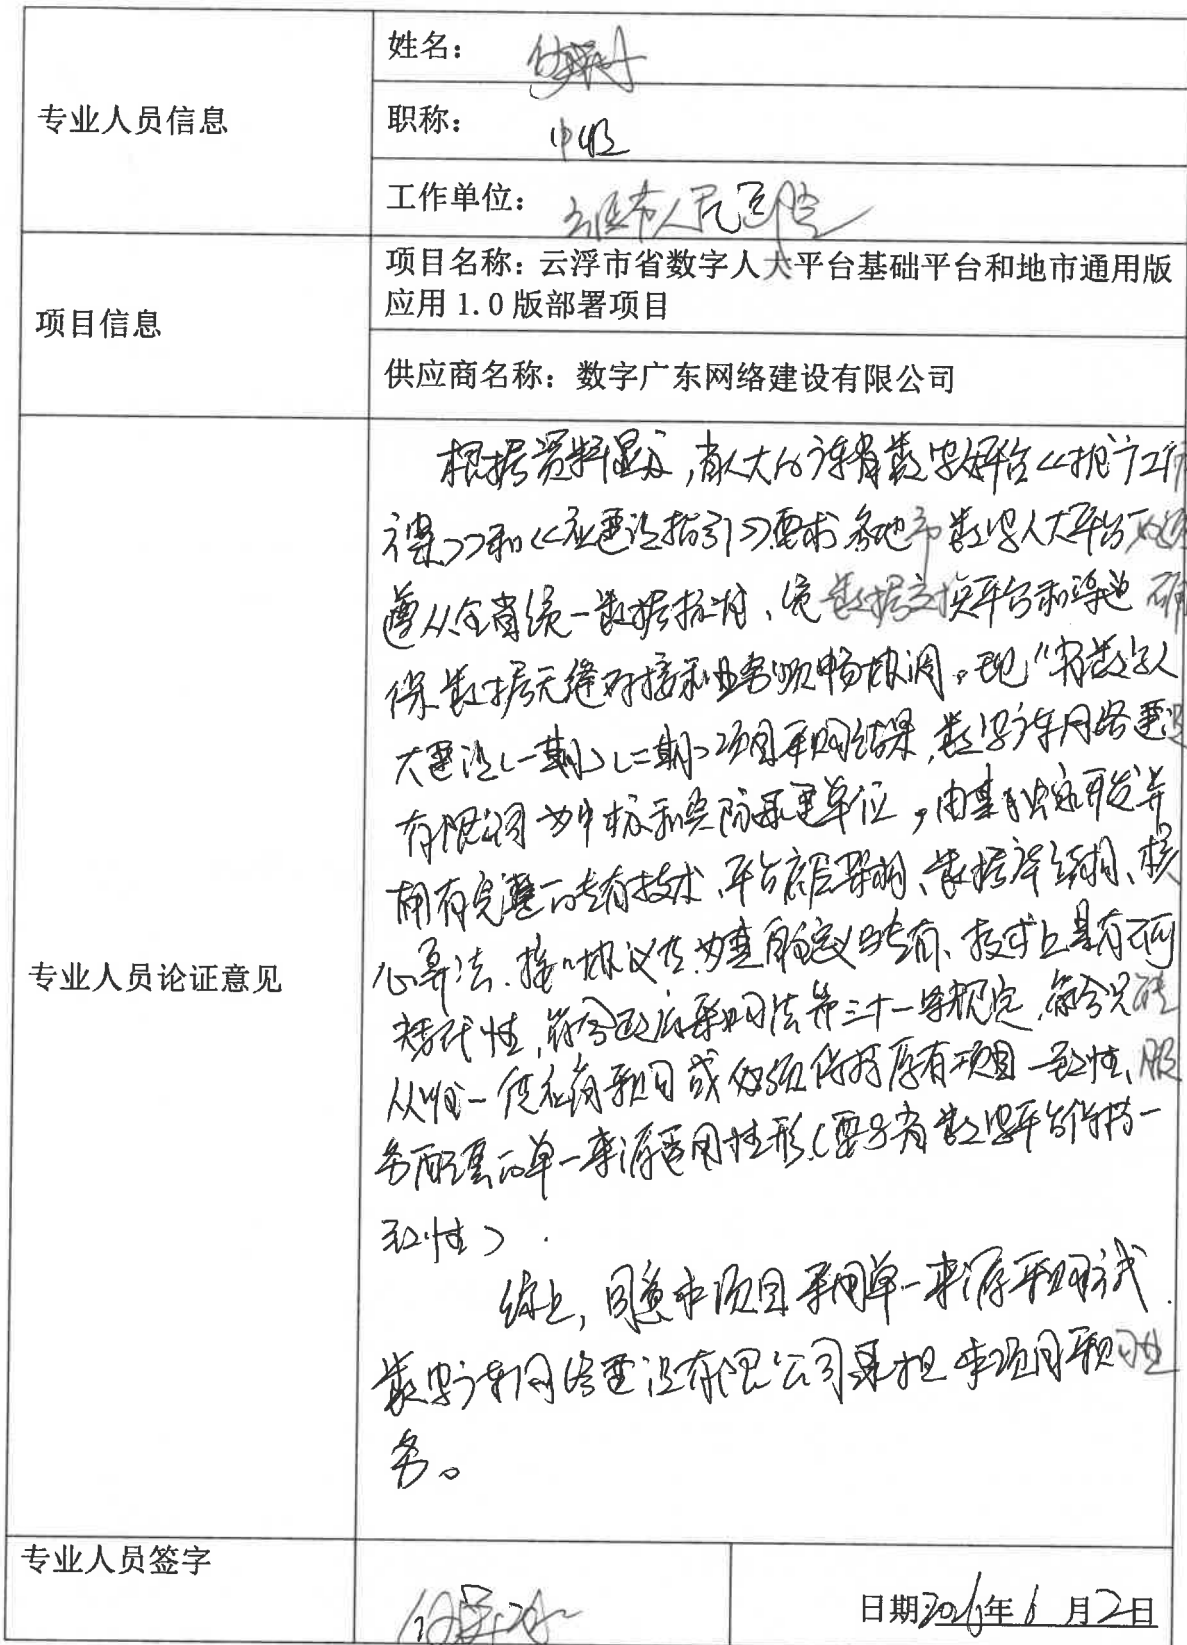 专业人员信息
姓名：
职称：中级
工作单位：云浮市人民医院
项目信息
项目名称：云浮市省数字人大平台基础平台和地市通用版
应用1.0版部署项目
供应商名称：数字广东网络建设有限公司
专业人员论证意见
根据资料显示，省人大的广东省数字平台《推广工作
》和《建设指引》要求各地市数字人大平台必须
遵从全省统一数据标准、统数据交换平台和渠道确
保数据无缝对接和业务顺畅协调。现“省数字人
大建设（一期）（二期）项目采购结果，数字广东网络建设
有限公司为中标和实际承建单位，由其独家开发并
拥有完整的专有技术、平台底层架构、数据库结构、核
心算法、接口协议专有、技术上具有不可
替代性，符合政府采购法第三十一条规定，符合只能
从唯一供应商采购或必须保持原有项目一致性、服
务配套的单一来源适用情形（要与省数字平台保持一
致性）.
综上，同意本项目采用单一来源采购方式
数字广东网络建设有限公司承担本项目采购业
务。
专业人员签字
日期：2026年1月2日